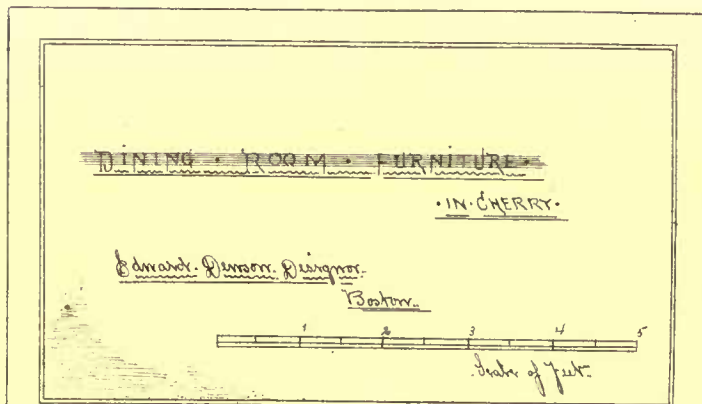 DINING · ROOM · FURNITURE ·
· IN · CHERRY ·
Edward. Dewson. Designor.
Boston.
1 2 3 4 5
Scale of Feet.